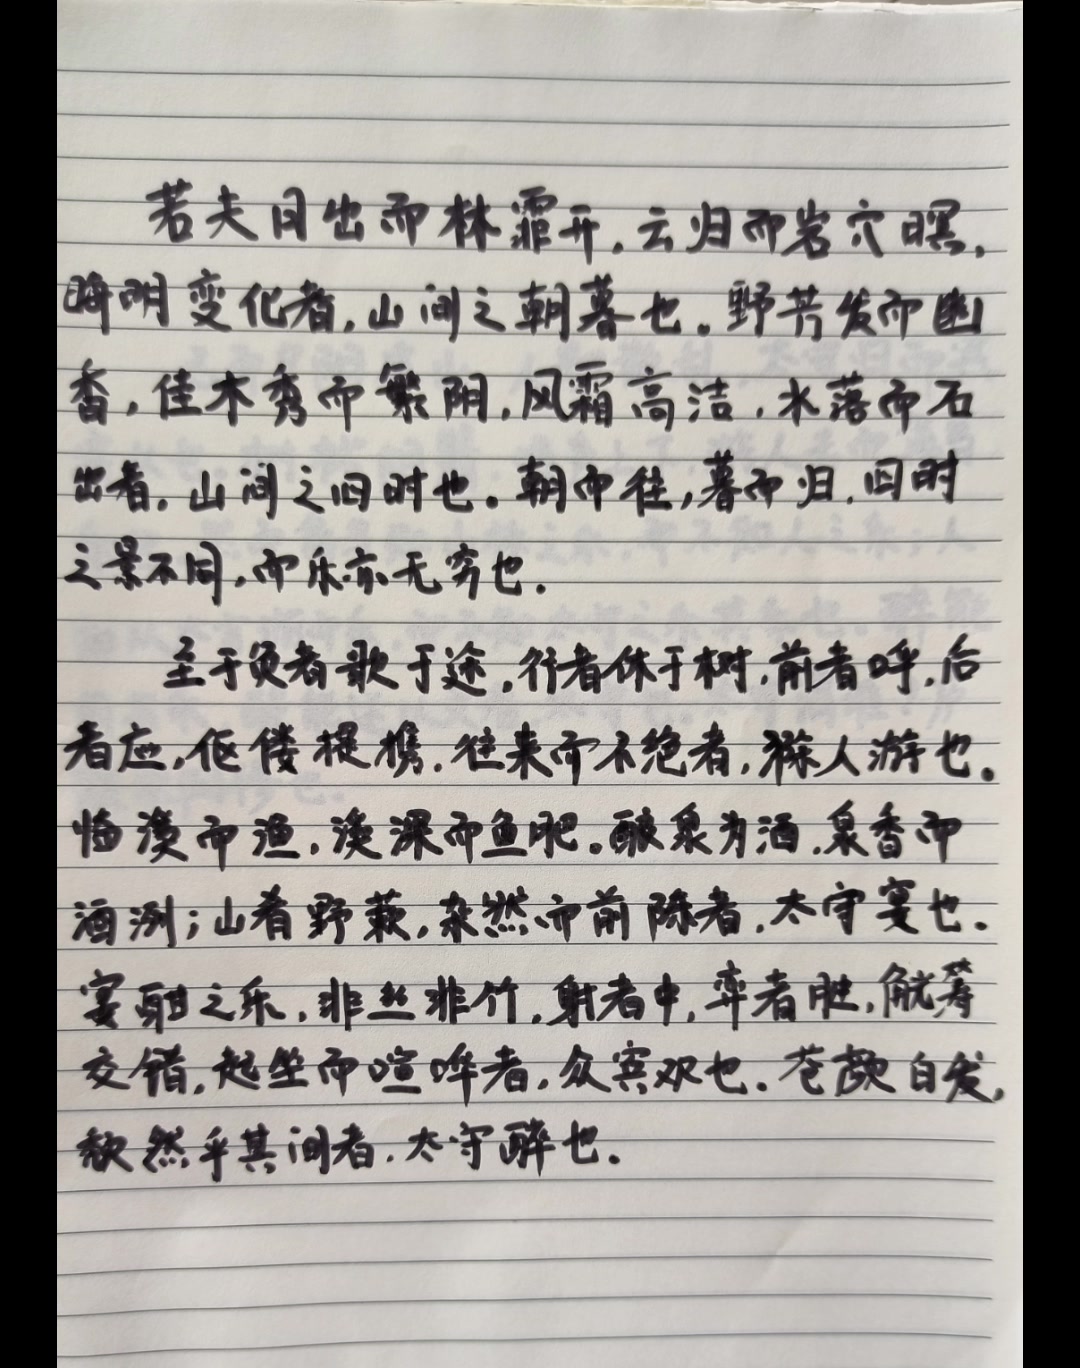 若夫日出而林霏开，云归而岩穴暝，
晦明变化者，山间之朝暮也。野芳发而幽
香，佳木秀而繁阴，风霜高洁，水落而石
出者，山间之四时也。朝而往，暮而归，四时
之景不同，而乐亦无穷也。
至于负者歌于途，行者休于树，前者呼，后
者应，伛偻提携，往来而不绝者，滁人游也。
临溪而渔，溪深而鱼肥。酿泉为酒，泉香而
酒洌；山肴野蔌，杂然而前陈者，太守宴也。
宴酣之乐，非丝非竹，射者中，弈者胜，觥筹
交错，起坐而喧哗者，众宾欢也。苍颜白发，
颓然乎其间者，太守醉也。